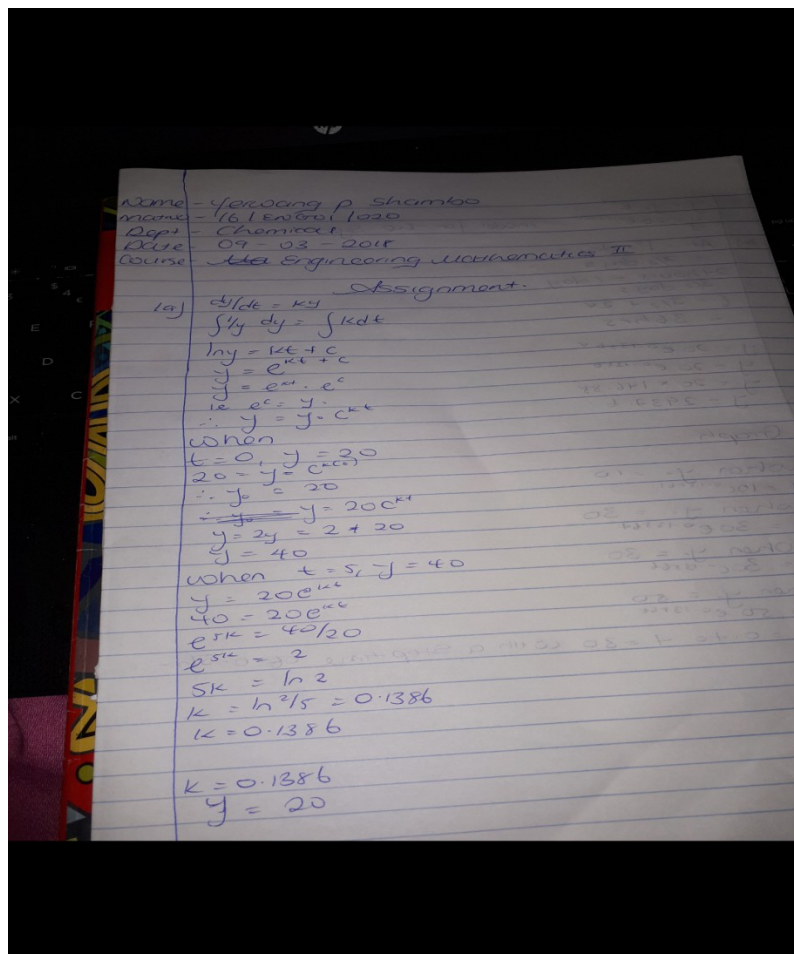 Name - Yerwang P Shambo
Matric - 16 / ENG01 / 020
Dept - Chemical
Date - 09 - 03 - 2018
Course - Engineering Mathematics II
Assignment.
1a) dy/dt = ky
∫1/y dy = ∫kdt
ln y = kt + c
y = e^kt + c
y = e^kt . e^c
ie e^c = y.
∴ y = y. e^kt
when
t = 0, y = 20
20 = y. e^k(0)
∴ y₀ = 20
∴ y₀ = y = 20e^kt
y = 2y = 2 * 20
y = 40
when t = 5, y = 40
y = 20e^kt
40 = 20e^kt
e^5k = 40/20
e^5k = 2
5k = ln 2
k = ln 2/5 = 0.1386
k = 0.1386
k = 0.1386
y = 20